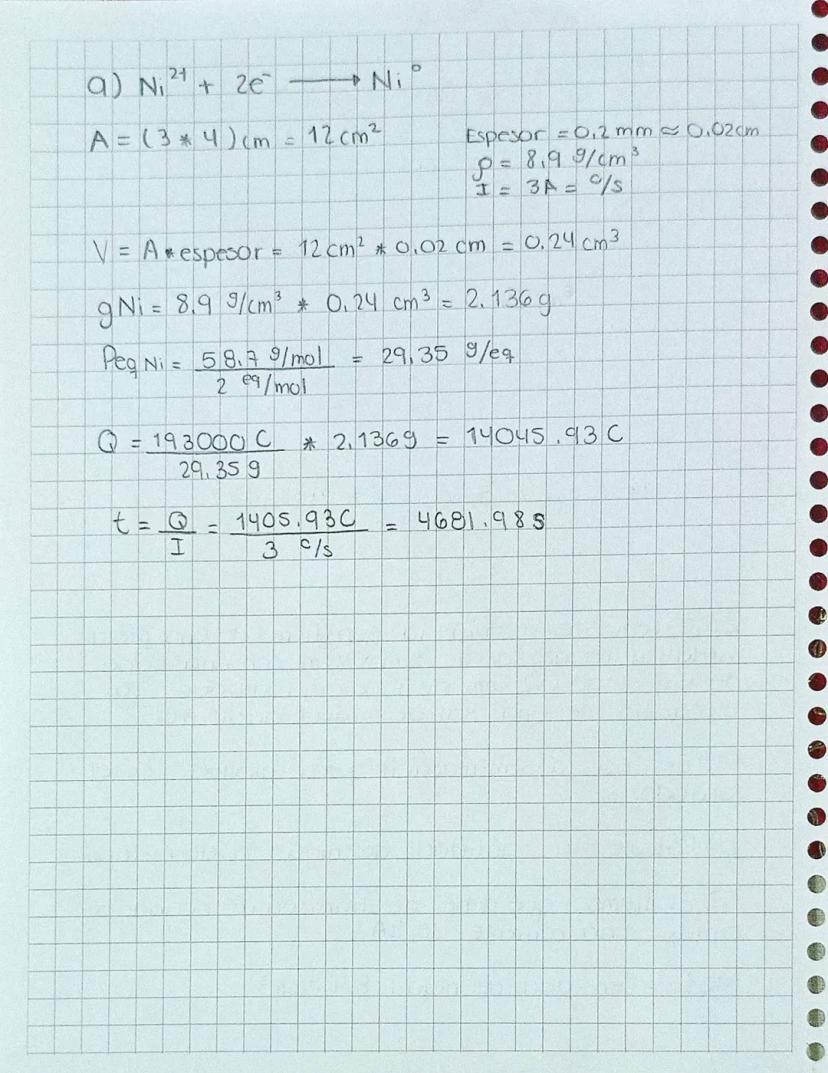 a) Ni²⁺ + 2e⁻ ⟶ Ni°
A = (3 * 4) cm = 12 cm²
Espesor = 0.2 mm ≈ 0.02cm
ρ = 8.9 g/cm³
I = 3A = C/s
V = A * espesor = 12 cm² * 0.02 cm = 0.24 cm³
gNi = 8.9 g/cm³ * 0.24 cm³ = 2.136 g
Peq Ni = 58.7 g/mol / 2 eq/mol = 29.35 g/eq
Q = 193000 C / 29.35 g * 2.136g = 14045.93 C
t = Q / I = 1405.93C / 3 C/s = 4681.98 s